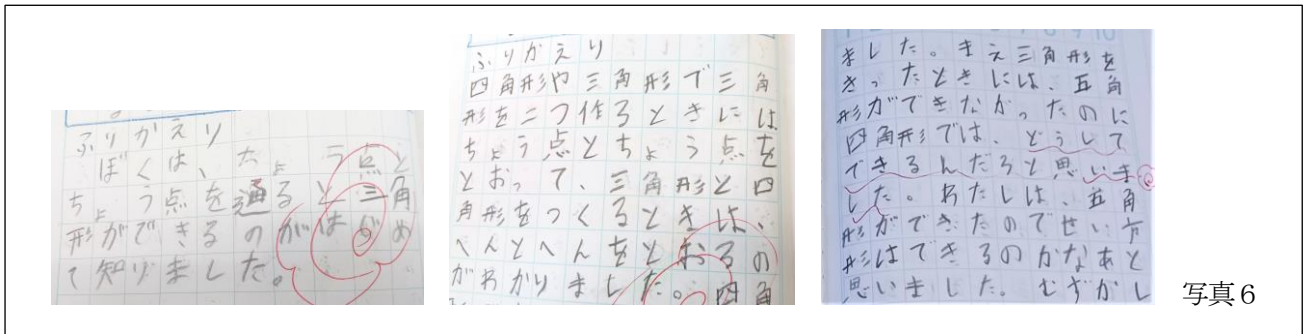 ふりかえり
ぼくは、ちょう点と
ちょう点を通ると三角
形ができるのがはじめ
て知りました。
ふりかえり
四角形や三角形で三角
形を二つ作るときには
ちょう点とちょう点を
とおって、三角形と四
角形をつくるときは、
へんとへんをとおるの
がわかりました。四角
ました。まえ三角形を
きったときには、五角
形ができなかったのに
四角形では、どうして
できるんだろと思いま
した。わたしは、五角
形ができたのでせい方
形はできるのかなあと
思いました。むずかし
写真6